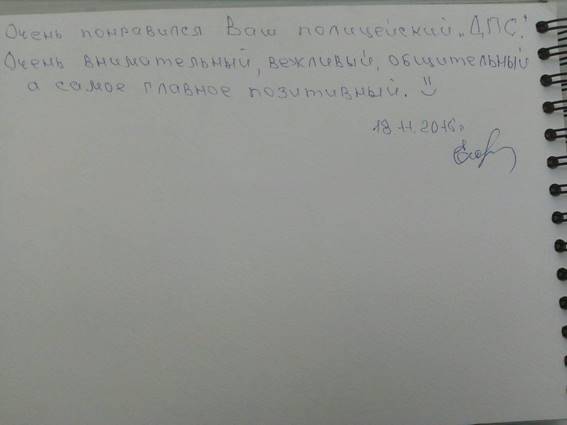 Очень понравился Ваш полицейский „ДПС".
Очень внимательный, вежливый, общительный
а самое главное позитивный.
18.11.2016г